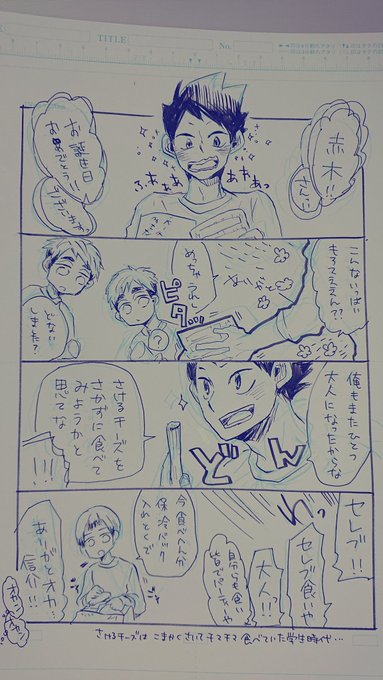 TITLE
No.
赤木!!
さん!!
お誕生日
おめでとう!!
ございます
ふあぁぁぁ
あぁぁっ
こんないっぱい
もろてええんて?
めっちゃうれし
ピタ
?
どない
しました?
俺もまたひとつ
大人になったからな
さけるチーズを
さかずに食べて
みようかと
思てな
どん
!!!
セレブ!!
セレブ食いや
大人!!
自分らも食い
皆でパーティや
今食べへん分
保冷パック
入れとくで
ありがとオカン
信介!!
オカンちゃう
さけるチーズは こまかくさいてチマチマ 食べていた学生時代…